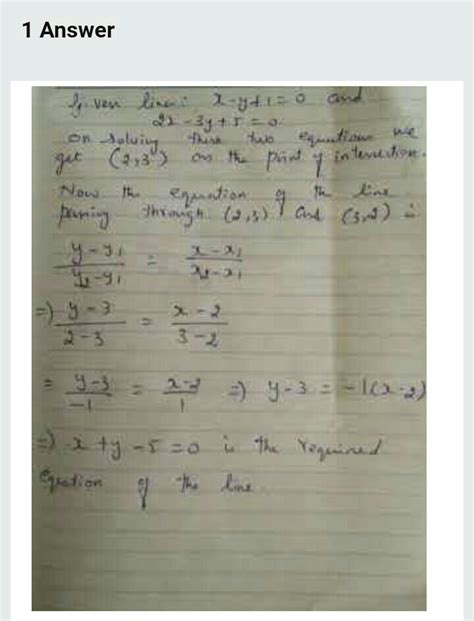 1 Answer
Given lines: x-y+1=0 and
2x-3y+5=0.
on solving these two equations we
get (2,3) as the point of intersection.
Now the equation of the line
passing through (2,3) and (3,2) is
y-y₁/y₂-y₁ = x-x₁/x₂-x₁
=) y-3/2-3 = x-2/3-2
= y-3/-1 = x-2/1 =) y-3 = -1(x-2)
=) x+y-5=0 is the required
equation of the line.